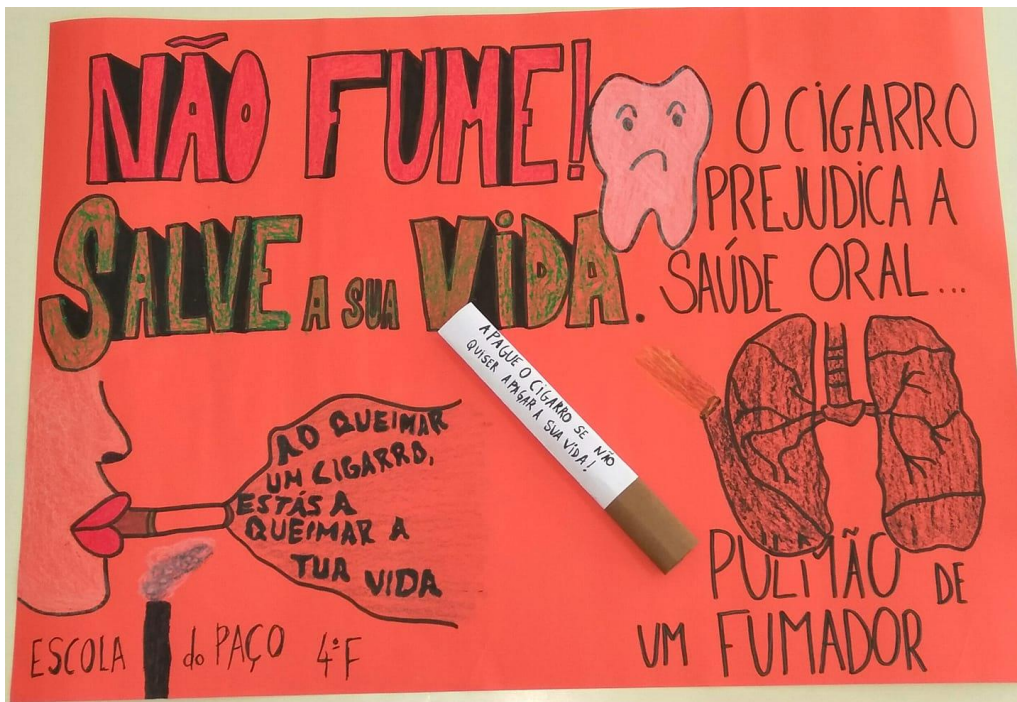 NÃO FUME!
SALVE A SUA VIDA.
O CIGARRO
PREJUDICA A
SAÚDE ORAL...
APAGUE O CIGARRO SE NÃO
QUISER APAGAR A SUA VIDA!
AO QUEIMAR
UM CIGARRO,
ESTÁS A
QUEIMAR A
TUA VIDA
PULMÃO DE
UM FUMADOR
ESCOLA do PAÇO 4ºF